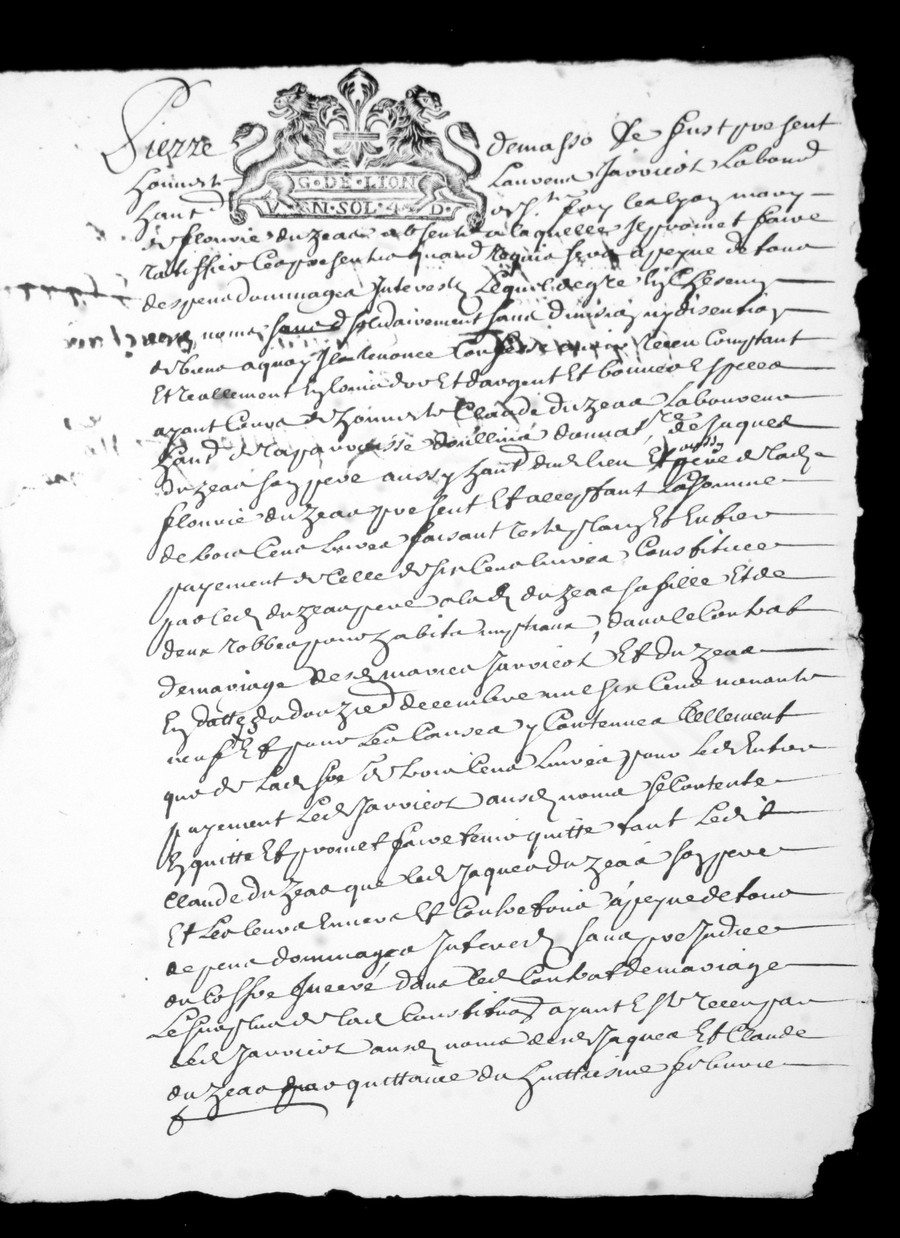 Pierre demasso Se sont present
honneste Laurens Jarricot Labour
hant
G·DE·LION
V·EN·SOL·4·D·
de flourie duzeas absente a laquelle Il promet faire
ratiffier Ces presentes quand requis sera a peyne de tous
despens dommages Interests Lequel de gre
noms solidairement sans division ny disention
de biens a quoy Il a renonce Confesse avoir receu Comptant
Et reallement En louis d'or Et d'argent Et bonnes Especes
ayant Cours de honneste Claude duzeas Laboureur
hant de la parroisse doullins de Jaques
duzeas son pere aussy hant dud lieu Et aussy pere de lad
flourie duzeas present Et acceptant La somme
de trois Cens livres faisant reste plain Et Entier
payement de Celle de six Cens livres Constituee
par led duzeas pere a lad duzeas sa fille Et de
deux robbes pour habits nuptiaux dans le Contrat
de mariage desd mariés Jarricot Et duzeas
En datte du douzie decembre mil six Cens nonante
neuf Et pour Les Causes y Contenues tellement
que de lad so de trois Cens livres pour led Entier
payement Led Jarricot ausd noms Se Contente
En quitte Et promet faire tenir quitte tant Ledit
Claude duzeas que led Jaques duzeas son pere
Et Les leurs Envers Et Contre tous a peyne de tous
depens dommages Interests sans prejudice
du Coffre Inseré dans led Contrat de mariage
Le surplus de lad Constitu ayant Esté receu par
led Jarricot ausd noms desd Jaques Et Claude
duzeas par quittance du huitiesme febvrier